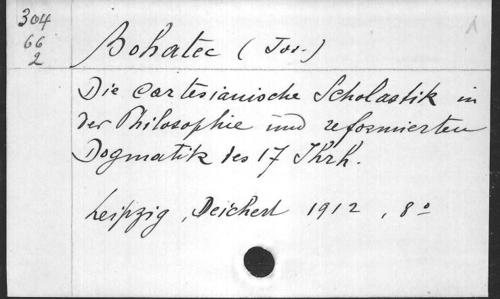 304
66
2
Bohatec (Jos.)
1
Die cartesianische Scholastik in
der Philosophie und reformierten
Dogmatik des 17 Jhrh.
Leipzig, Deichert 1912, 8°